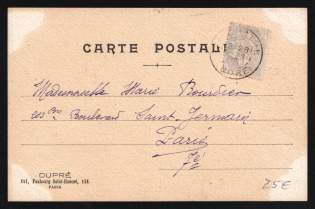 CARTE POSTALE
Mademoiselle Marie Bourdier
Boulevard Saint-Germain
Paris
DUPRÉ
141, Faubourg Saint-Honoré, 141
PARIS
25€